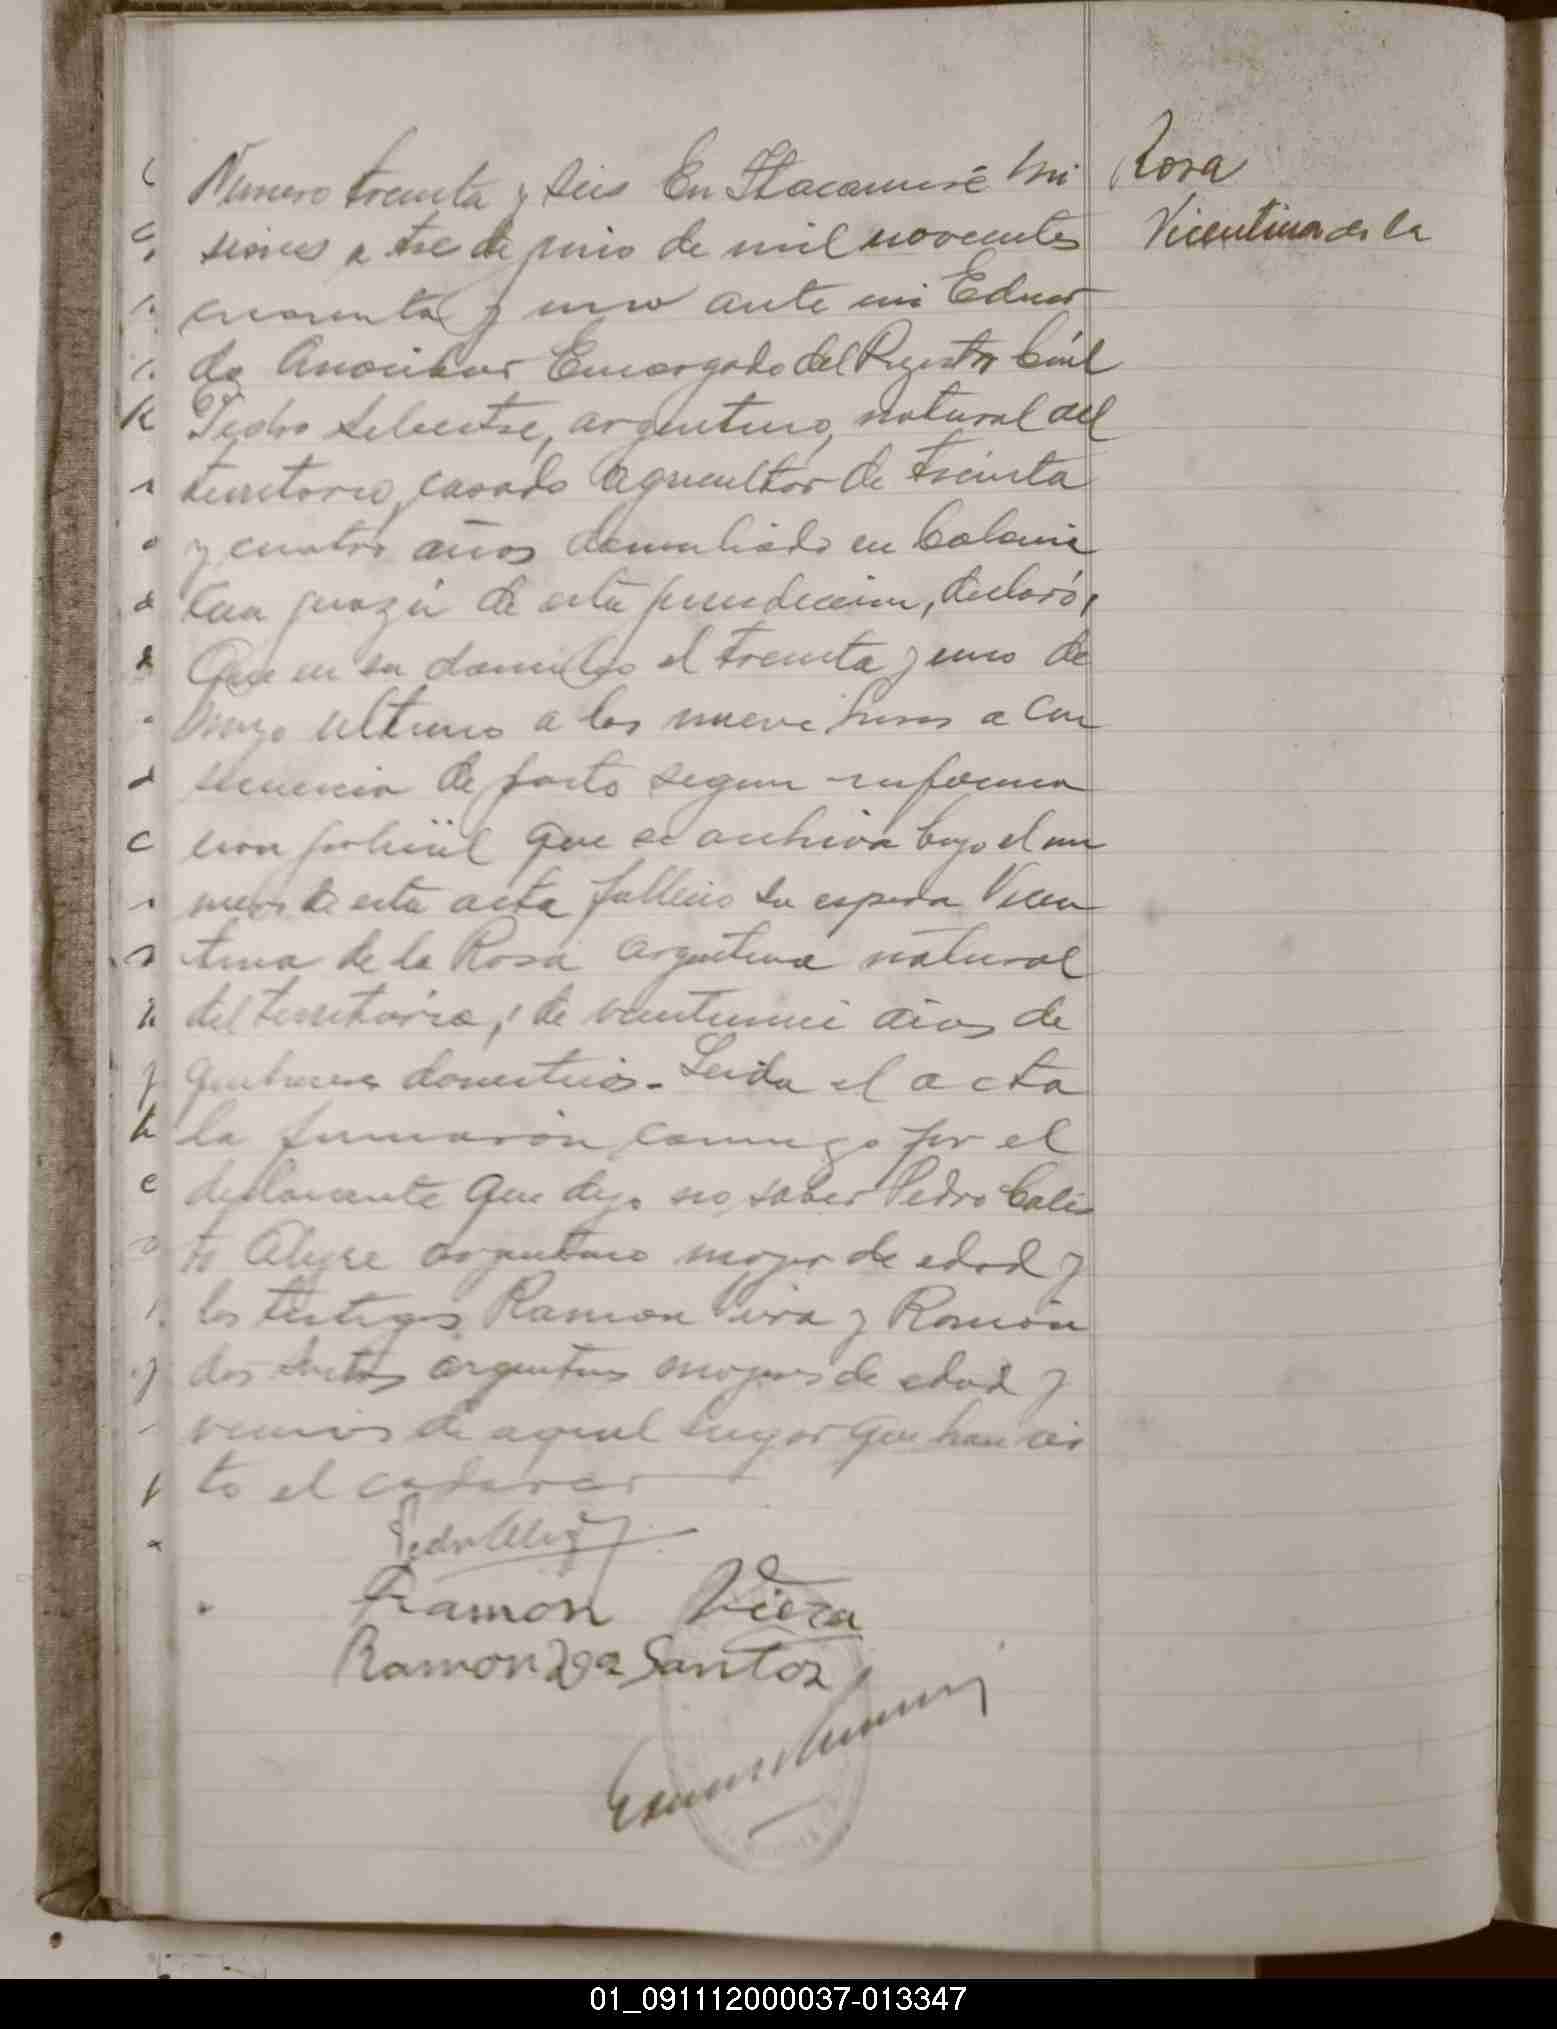 Numero treinta y seis En Itacaruaré Mi
siones a tres de junio de mil novecientos
cuarenta y uno ante mi Eduar
do Encargado del Registro Civil
Pedro Silvestre, argentino, natural del
territorio, casado agricultor de treinta
y cuatro años domiciliado en Colonia
de esta jurisdiccion, declaró,
Que en su domicilio el treinta y uno de
Mayo ultimo a las nueve horas a con
secuencia de parto segun informa
cion policial que se archiva bajo el nu
mero de esta acta fallecio su esposa Vicen
tina de la Rosa argentina natural
del territorio, de veintinueve años de
quehaceres domesticos. Leida el acta
la firmaron conmigo por el
declarante que dijo no saber Pedro Calis
to Alegre argentino mayor de edad y
los testigos Ramon Viera y Ramón
dos Santos argentinos mayores de edad y
vecinos de aquel lugar que han vis
to el cadaver
Rosa
Vicentina de la
Pedro Aleg
Ramon Viera
Ramon Dos Santos
01_091112000037-013347